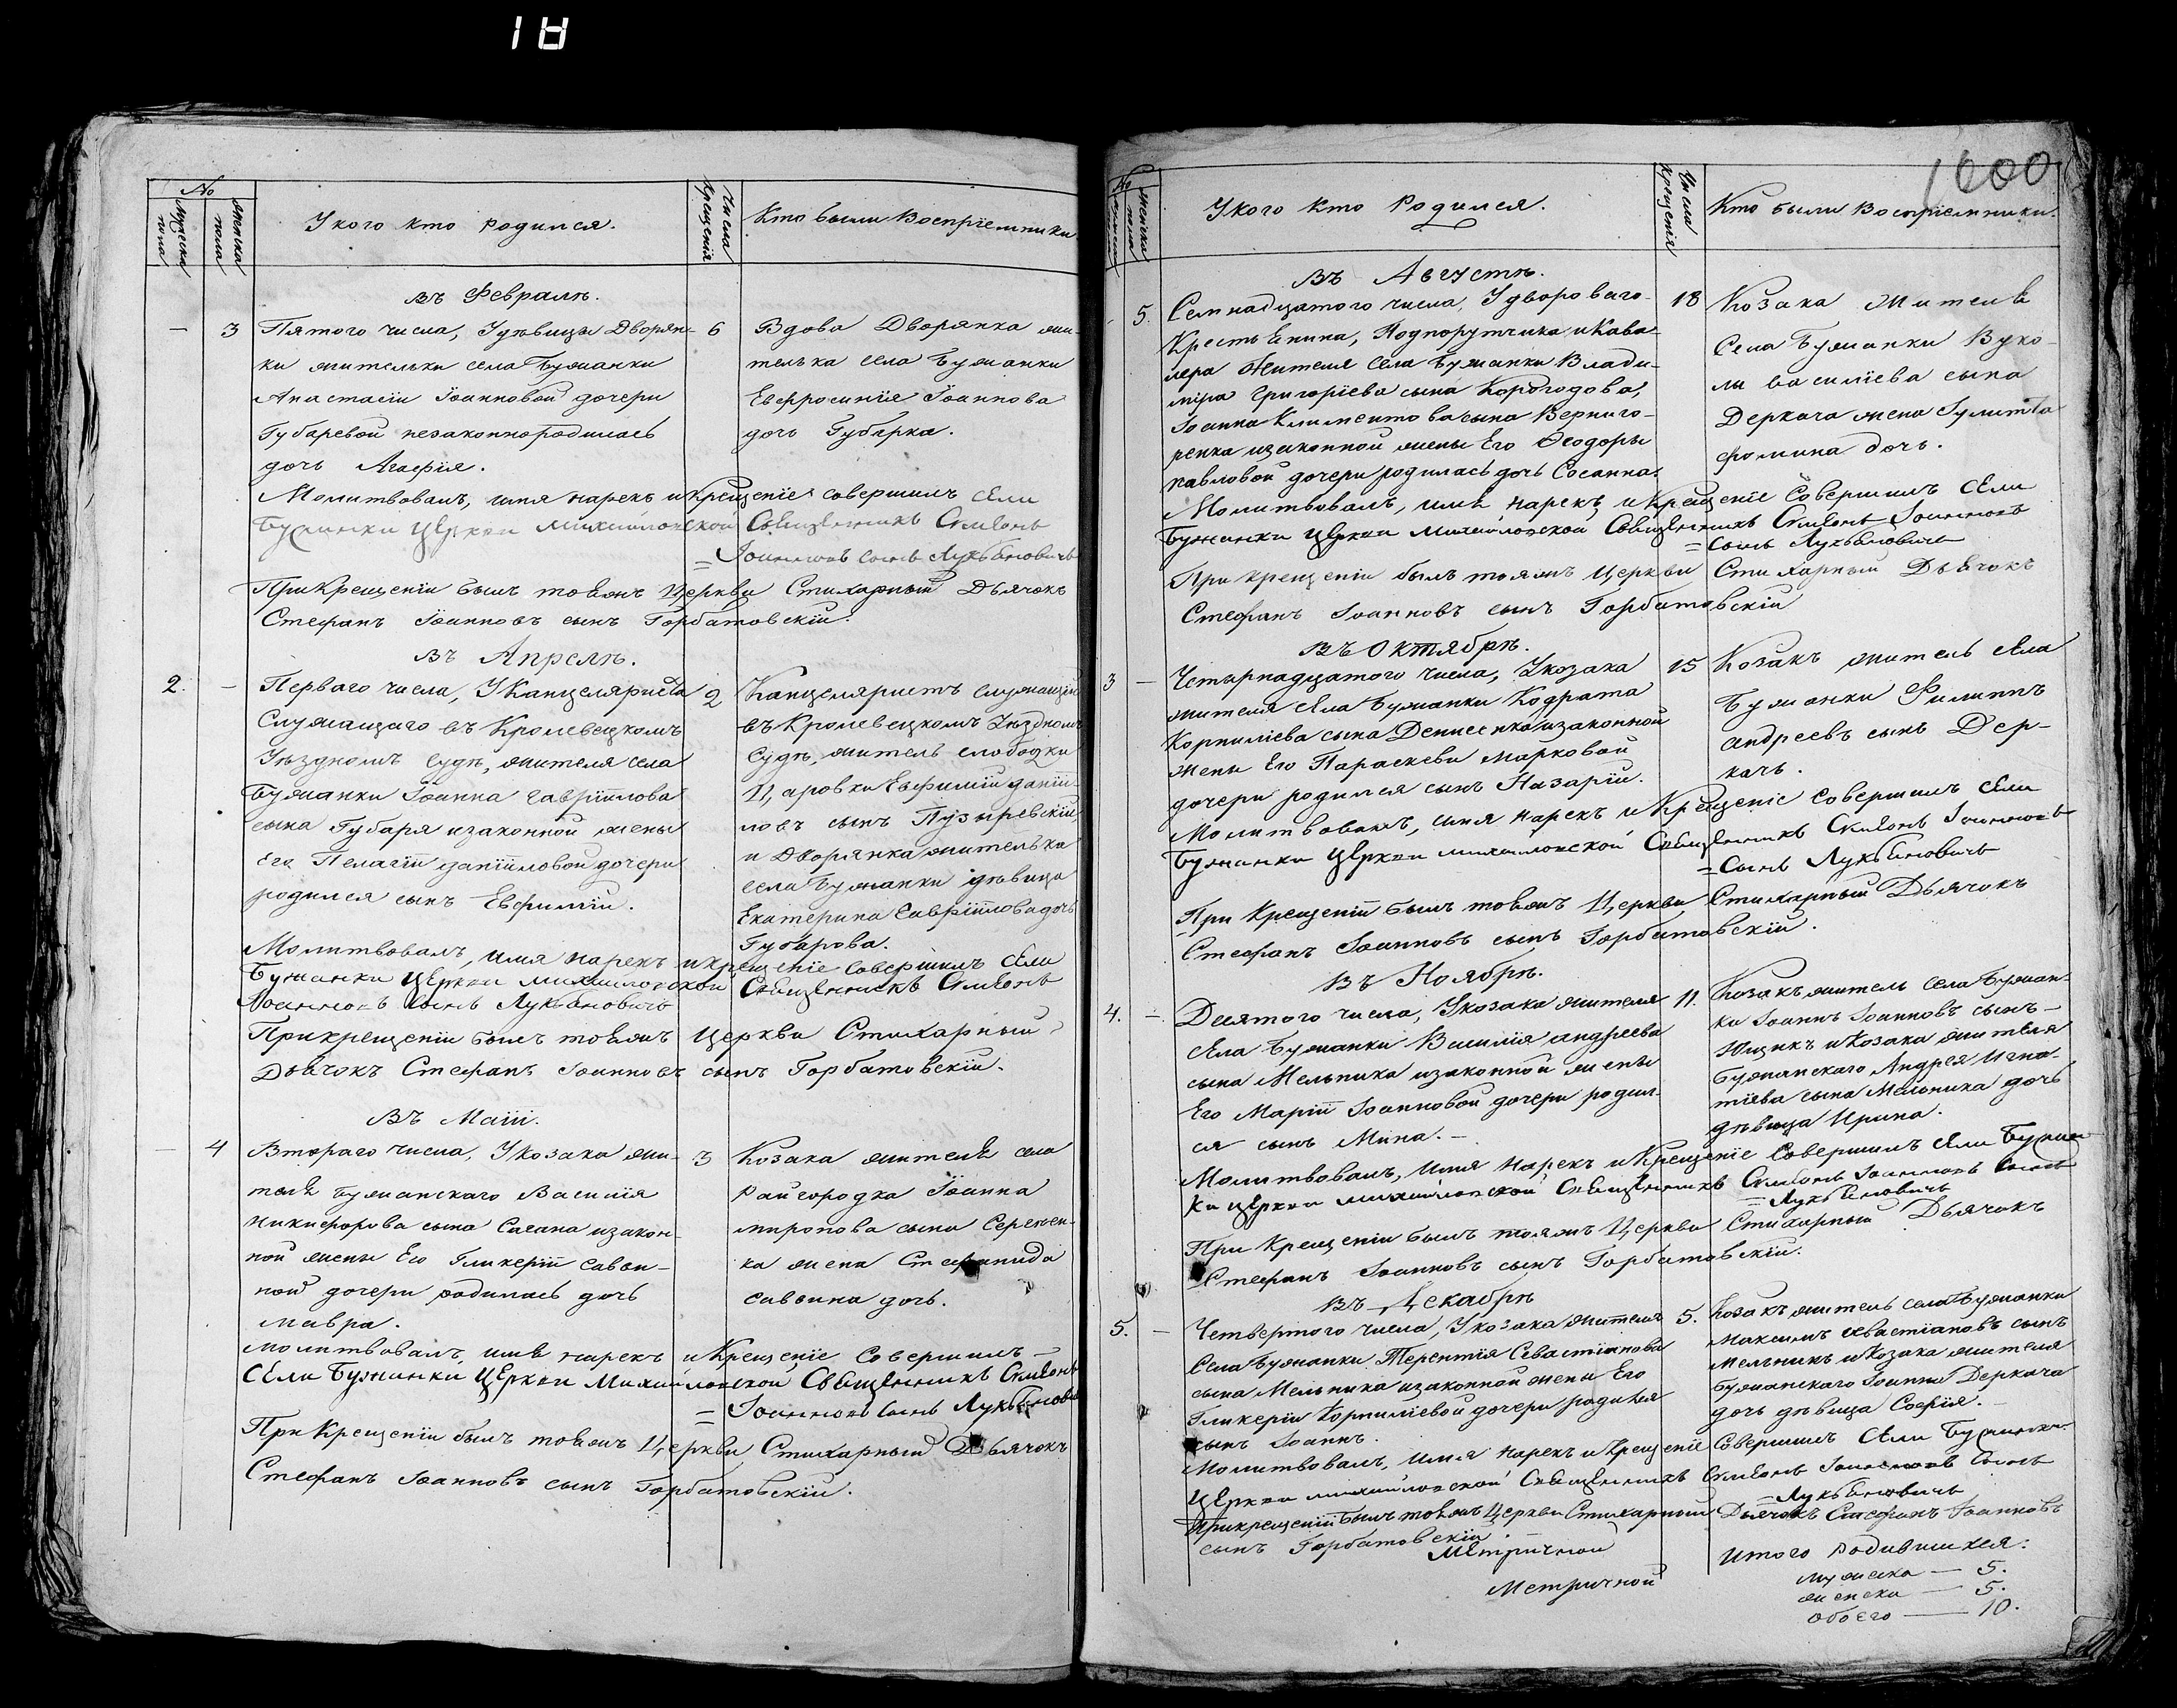 18
№
Мужеска пола
Женска пола
У кого кто родился.
Числа крещенія
Кто были Воспріемники
въ Февралѣ.
— 3 Пятого числа, У дѣвицы Дворян-
ки жительки села Бужанки
Анастасіи Іоанновой дочери
Губаревой незаконнородилась
дочь Агафія.
6 Вдова Дворянка жи-
телька села Бужанки
Евфросинія Іоаннова
дочь Губарка.
Молитвовалъ, имя нарекъ и крещеніе совершилъ села
Бужанки Церкви Михайловской Священникъ Симеонъ
= Іоанновъ сынъ Лукьяновичъ
При Крещеніи былъ тоеяжъ Церкви Стихарный Дьячокъ
Стефанъ Іоанновъ сынъ Горбатовскій.
въ Апрелѣ.
2. — Перваго числа, У Канцеляриста
Служащаго въ Кролевецкомъ
Уѣздномъ Судѣ, жителя села
Бужанки Іоанна Гавріилова
сына Губаря и законной жены
Его Пелагіи Даніиловой дочери
родился сынъ Евфимій.
2 Канцеляристъ служащій
въ Кролевецкомъ Уѣздномъ
Судѣ, житель слободки
Царовки Евфимій Даніи-
ловъ сынъ Пузыревскій,
и Дворянка жителька
села Бужанки дѣвица
Екатерина Гавріилова дочь
Губарова.
Молитвовалъ, имя нарекъ и крещеніе совершилъ села
Бужанки Церкви Михайловской Священникъ Симеонъ
Іоанновъ сынъ Лукьяновичъ
При крещеніи былъ тоеяжъ Церкви Стихарный
Дьячокъ Стефанъ Іоанновъ сынъ Горбатовскій.
Въ Маіи.
— 4 Втораго числа, У козака жи-
теля Бужанскаго Василія
Никифорова сына Сагана и закон-
ной жены Его Гликеріи Савви-
ной дочери родилась дочь
Мавра.
3 Козака жителя села
Райгородка Іоанна
Миронова сына Сережен-
ка жена Стефанида
Саввина дочь.
Молитвовалъ, имя нарекъ и Крещеніе Совершилъ —
Села Бужанки Церкви Михайловской Священникъ Симеонъ
= Іоанновъ сынъ Лукьянови
При Крещеніи былъ тоеяжъ Церкви Стихарный Дьячокъ
Стефанъ Іоанновъ сынъ Горбатовскій.
1600
№
Женска пола
У кого кто Родился.
Числа крещенія
Кто были Воспріемники.
Въ Августѣ.
5. Семнадцатого числа, У двороваго
Крестьенина, Подпорутчика и Кава-
лера жителя села Бужанки Влади-
міра Григоріева сына Корогодова,
Іоанна Климентова сына Верниго-
ренка и законной жены Его Феодоры
Павловой дочери родилась дочь Сосанна.
18 Козака жителя
Села Бужанки Вуко-
лы Василіева сына
Деркача жена Іулитта
Фомина дочь.
Молитвовалъ, имя нарекъ и Крещеніе Совершилъ Села
Бужанки Церкви Михайловской Священникъ Симеонъ Іоанновъ
= Сынъ Лукьяновичъ
При Крещеніи былъ тояжъ Церкви Стихарный Дьячокъ
Стефанъ Іоанновъ сынъ Горбатовскій
Въ Октябрѣ.
3 — Четырнадцатого числа, У козака
жителя села Бужанки Кодрата
Корниліева сына Денисенка и законной
жены Его Параскевы Марковой
дочери родился сынъ Назарій.
15 Козакъ житель села
Бужанки Филиппъ
Андреевъ сынъ Дер-
качъ.
Молитвовалъ, имя нарекъ и Крещеніе совершилъ Села
Бужанки Церкви Михайловской Священникъ Симеонъ Іоанновъ
= Сынъ Лукьяновичъ
При Крещеніи былъ тоеяжъ Церкви Стихарный Дьячокъ
Стефанъ Іоанновъ сынъ Горбатовскій.
Въ Ноябрѣ.
4. — Десятого числа, У козака жителя
села Бужанки Василія Андреева
сына Мельника и законной жены
Его Маріи Іоанновой дочери родил-
ся сынъ Мина. —
11. Козакъ житель села Бужан-
ки Іоаннъ Іоанновъ сынъ —
Ющикъ и Козака жителя
Бужанскаго Андрея Игна-
тіева сына Мельника дочь
дѣвица Ирина.
Молитвовалъ, имя нарекъ и Крещеніе Совершилъ Села Бужан
ки Церкви Михайловской Священникъ Симеонъ Іоанновъ сынъ
= Лукьяновичъ
При Крещеніи былъ тояжъ Церкви Стихарный Дьячокъ
Стефанъ Іоанновъ сынъ Горбатовскій.
Въ Декабрѣ
5. — Четвертого числа, У козака жителя
Села Бужанки Терентія Севастіанова
сына Мельника и законной жены Его
Гликеріи Корниліевой дочери родился
сынъ Іоаннъ.
5. Козакъ житель села Бужанки
Максимъ Севастіановъ сынъ
Мельникъ и Козака жителя
Бужанскаго Іоанна Деркача
дочь дѣвица Софія. —
Молитвовалъ, имя нарекъ и Крещеніе Совершилъ Села Бужанки
Церкви Михайловской Священникъ Симеонъ Іоанновъ Сынъ
= Лукьяновичъ
При крещеніи былъ тоеяжъ Церкви Стихарный Дьячокъ Стефанъ Іоанновъ
сынъ Горбатовскій
Метричной
Метричной
Итого родившихся:
мужеска — 5.
женска — 5.
обоего — 10.